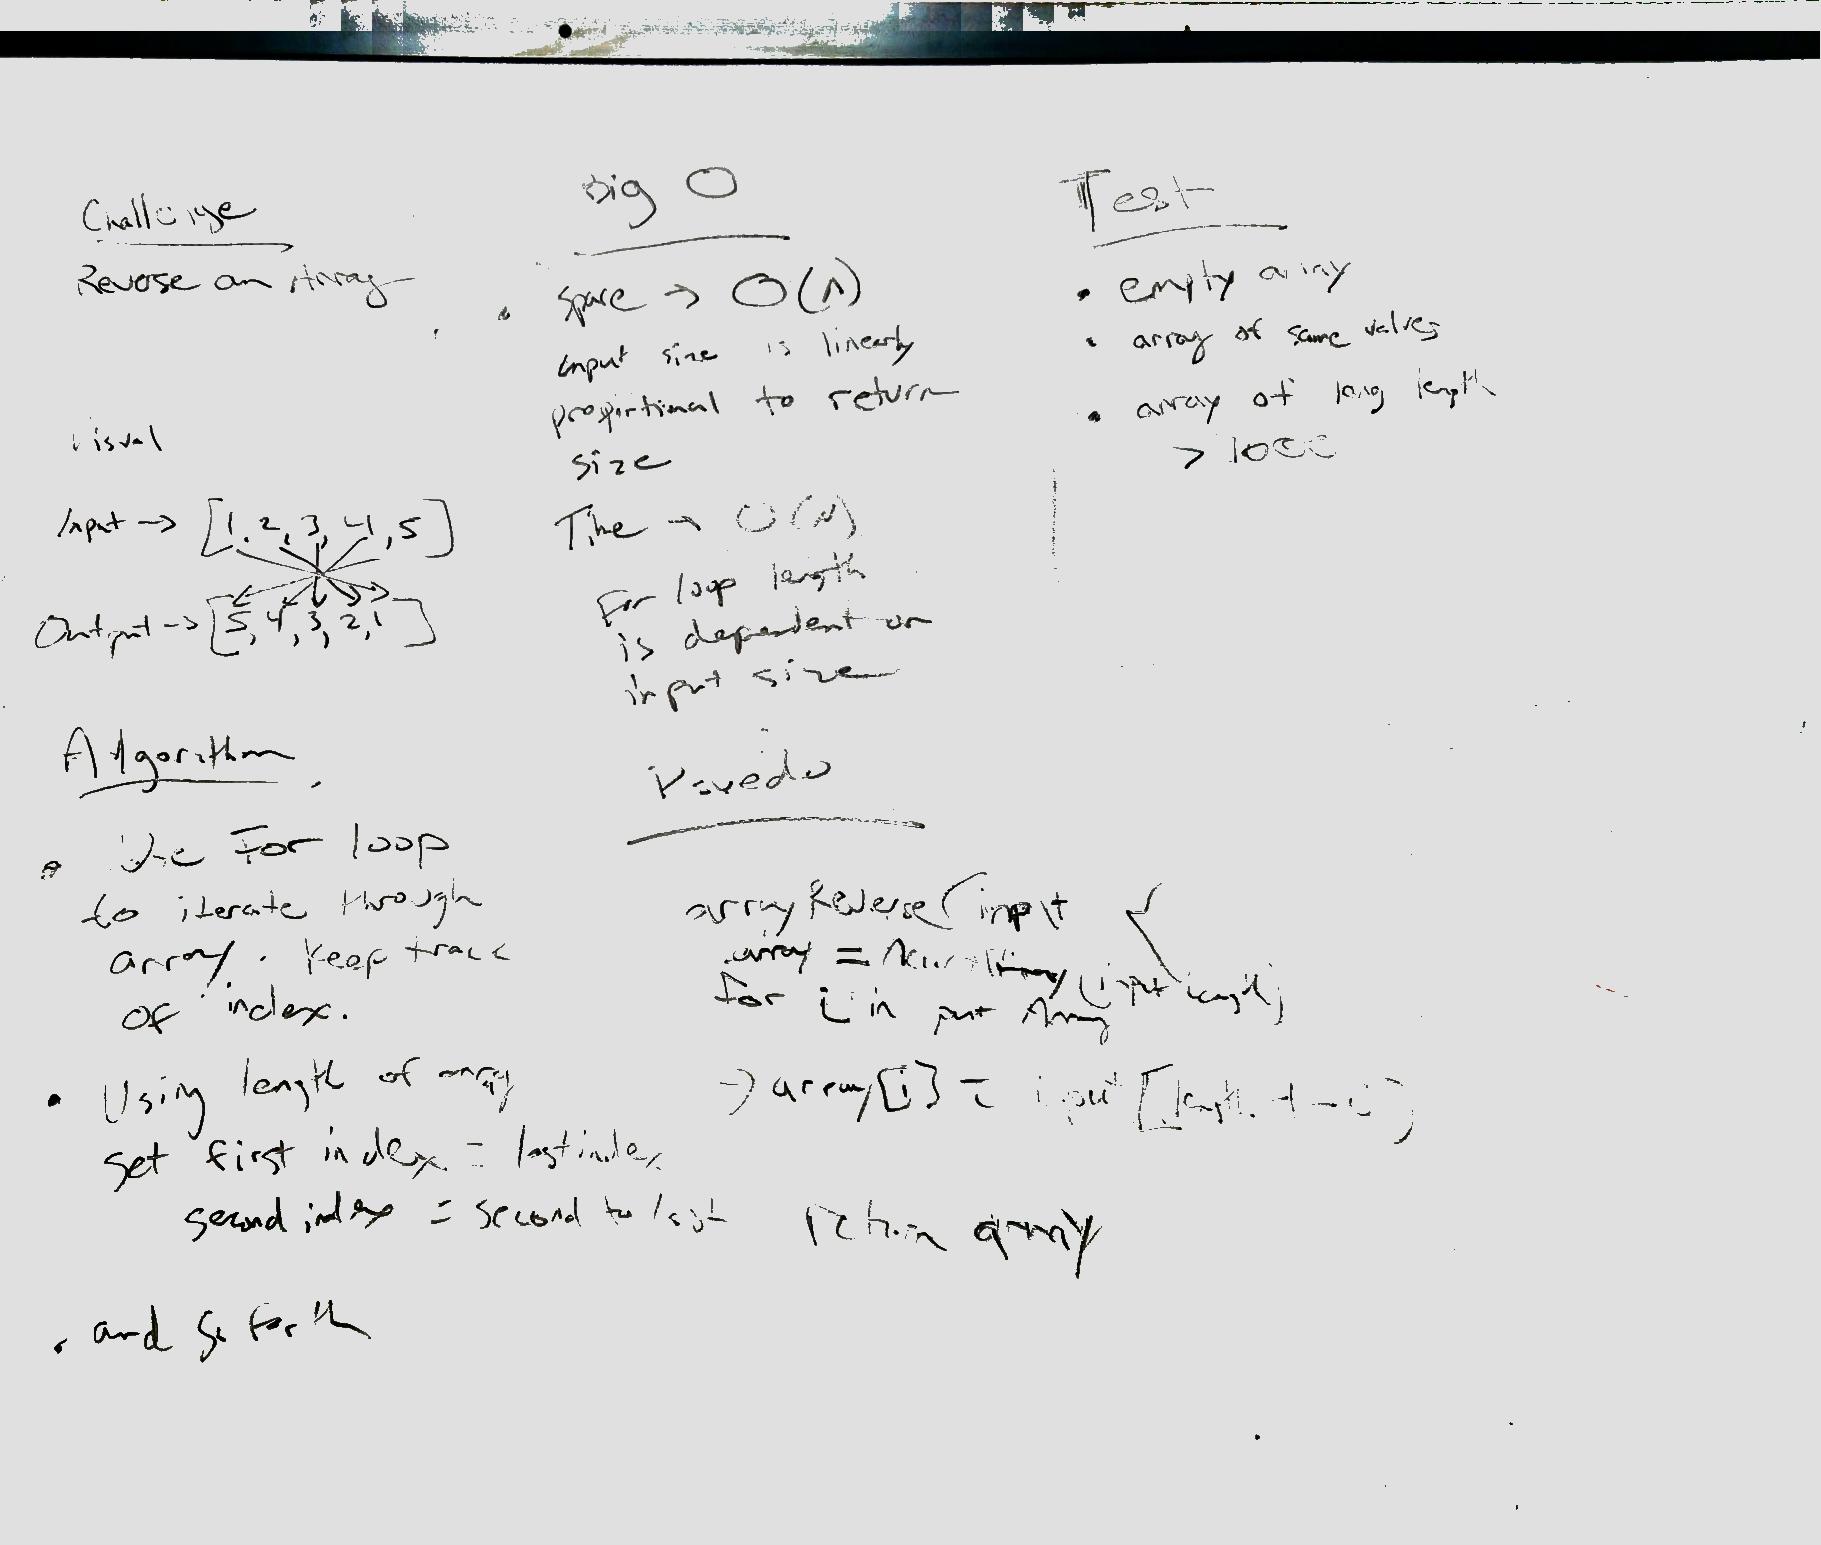 Challenge
Reverse an Array
Visual
Input → [1, 2, 3, 4, 5]
Output → [5, 4, 3, 2, 1]
Algorithm
• Use For loop
to iterate through
array. Keep track
of index.
• Using length of array
set first index = last index
second index = second to last
• and so forth
Big O
• Space → O(N)
input size is linearly
proportional to return
size
Time → O(N)
For loop length
is dependent on
input size
arrayReverse(input
array = Array(input length)
for i in put Array
→ array[i] = input[length - 1 - i]
return array
Test
• empty array
• array of same values
• array of long length
> 1000